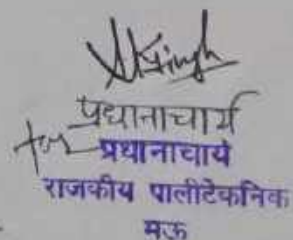 SKSingh
प्रधानाचार्य
for प्रधानाचार्य
राजकीय पालीटेकनिक
मऊ